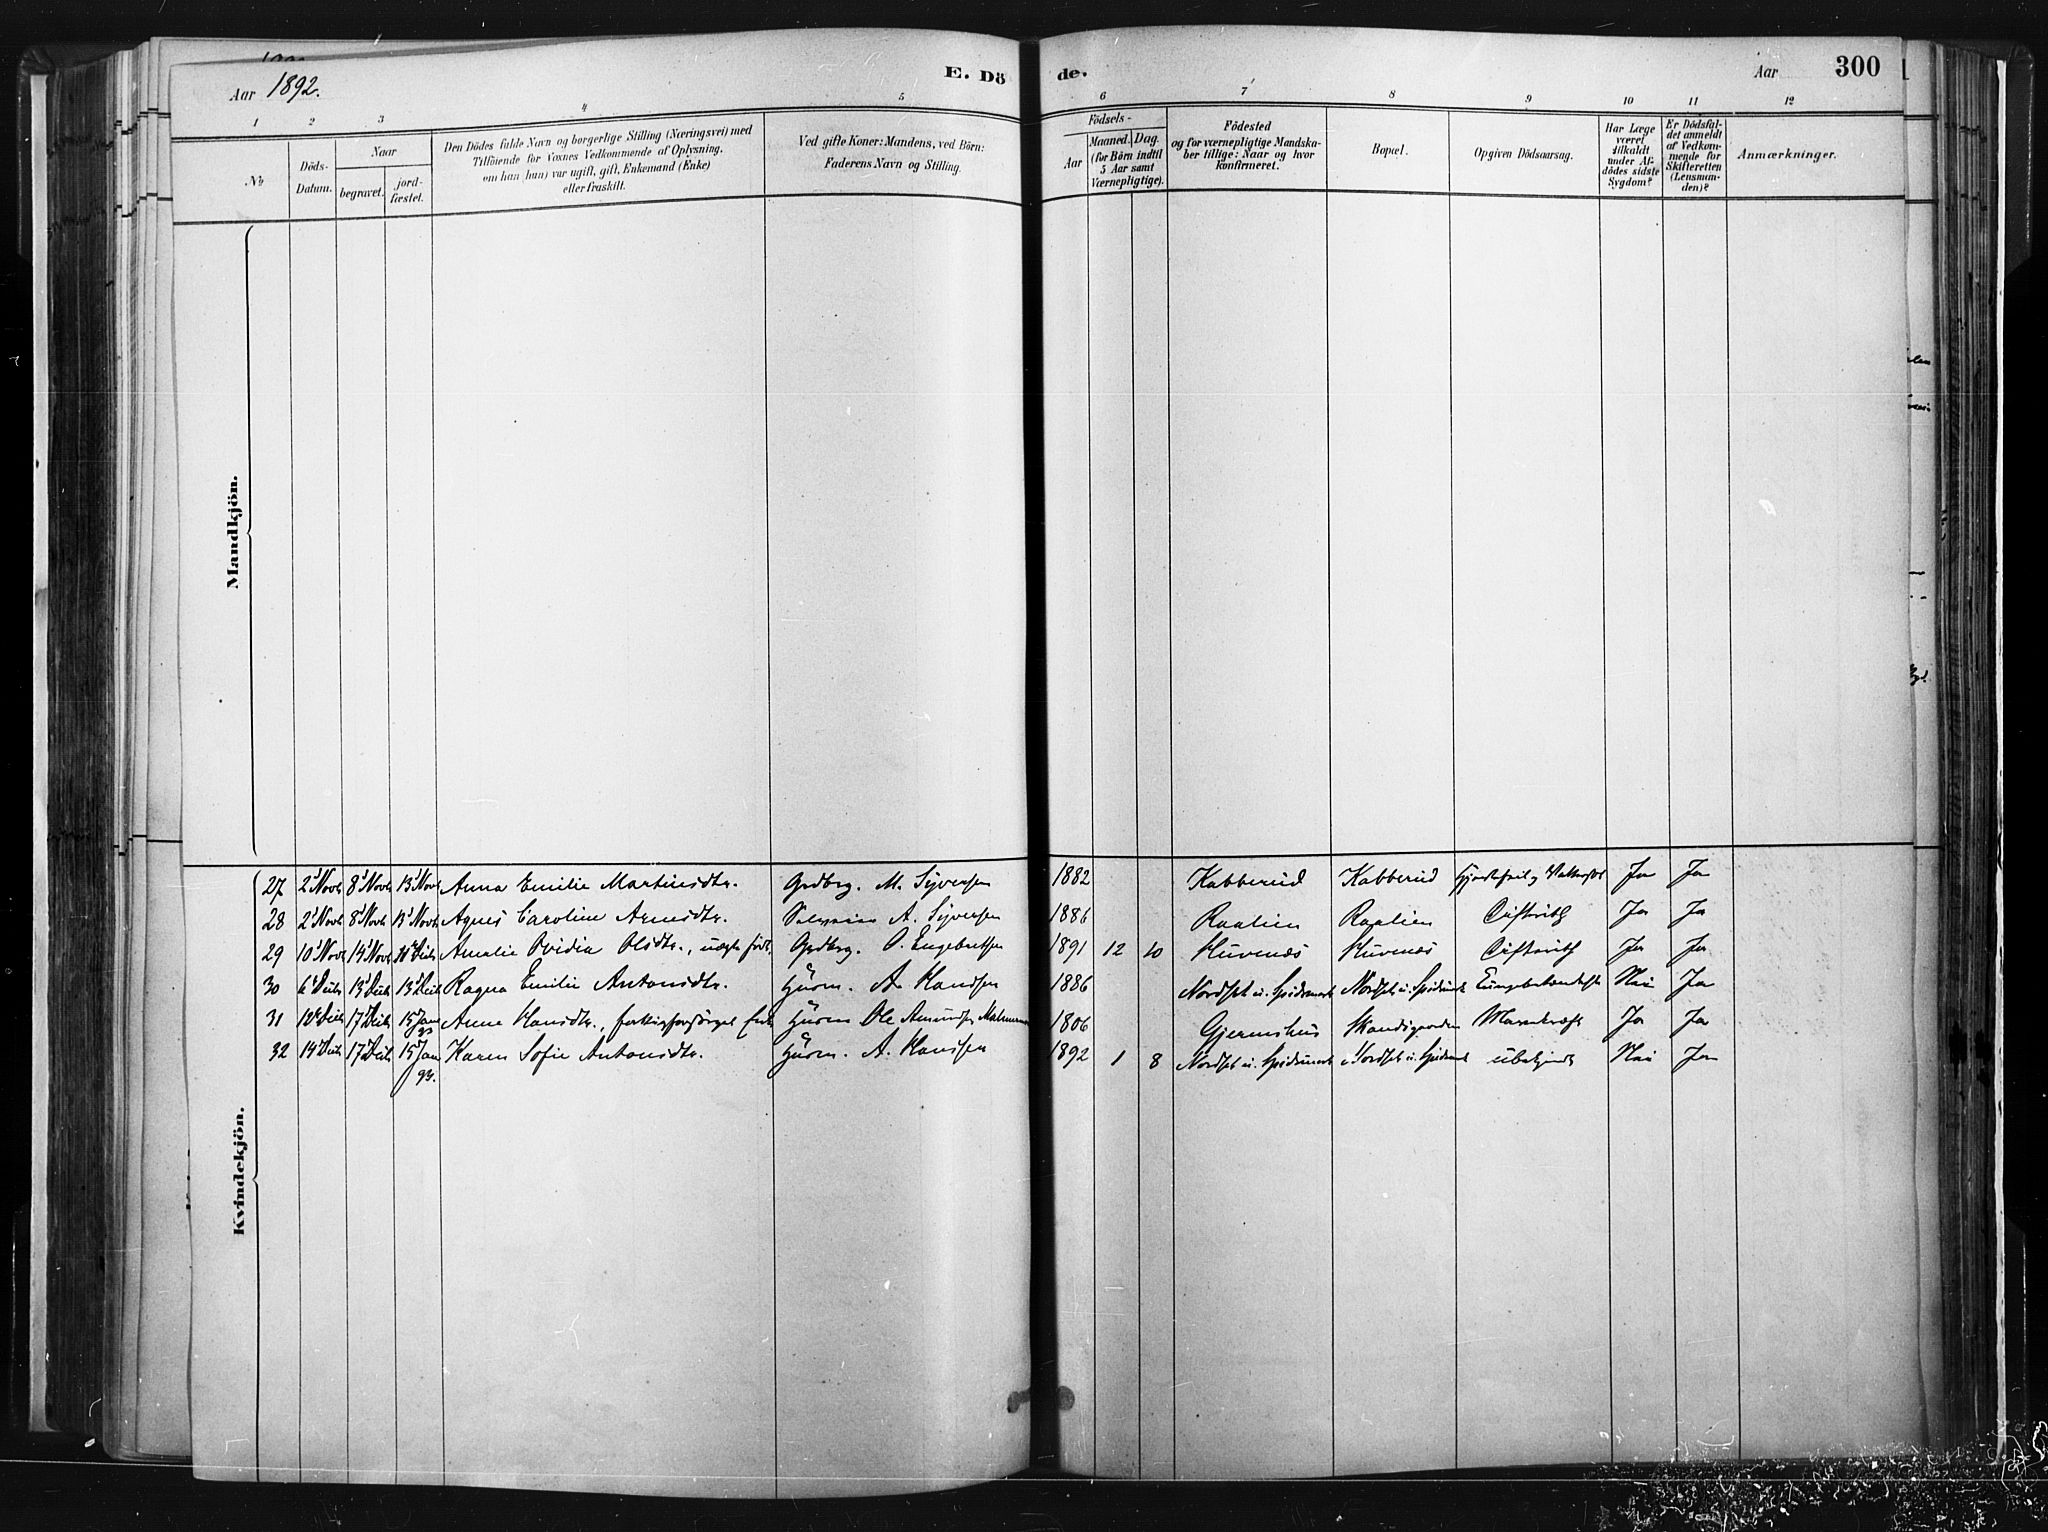 Aar 1892.
E. Dö de.
Aar 300
1 2 3 4 5 6 7 8 9 10 11 12
No
Döds-Datum.
Naar
begravet.
jord-fæstet.
Den Dödes fulde Navn og borgerlige Stilling (Næringsvei) med
Tilföiende for Voxnes Vedkommende af Oplysning,
om han (hun) var ugift, gift, Enkemand (Enke)
eller fraskilt.
Ved gifte Koner: Mandens, ved Börn:
Faderens Navn og Stilling.
Födsels-
Aar
Maaned. Dag.
(for Börn indtil
5 Aar samt
Værnepligtige).
Födested
og for værnepligtige Mandska-
ber tillige: Naar og hvor
konfirmeret.
Bopæl.
Opgiven Dödsaarsag.
Har Læge
været
tilkaldt
under Af-
dödes sidste
Sygdom?
Er Dödsfal-
det anmeldt
af Vedkom-
mende for
Skifteretten
(Lensman-
den)?
Anmærkninger.
Mandkjön.
Kvindekjön.
27 2 Novb 8 Novb 13 Novb Anna Emilie Martinsdtr. Grdbrg. M. Syversen 1882 Kabberud Kabberud Ja Ja
28 2 Novb 8 Novb 13 Novb Agnes Caroline Arnesdtr. A. Syversen 1886 Raalien Raalien Difterith Ja Ja
29 10 Novb 14 Novb Amalie Ovidia Olsdtr., uægte født, Grdbrg. O. Engebretsen 1891 12 10 Huvenæs Huvenæs Difterith Ja Ja
30 6 Decb 13 Decb 13 Decb Ragna Emilie Antonsdtr. Husm. A. Hansen 1886 Nordset u. Nordset u. Nei Ja
31 12 Decb 17 Decb 15 Jan 93 Anne Hansdtr., Husm. Ole Amundsen 1806 Gjermshus Ja Ja
32 14 Decb 17 Decb 15 Jan 93. Karen Sofie Antonsdtr. Husm. A. Hanssen 1892 1 8 Nordset u. Nordset u. ubekjendt Nei Ja